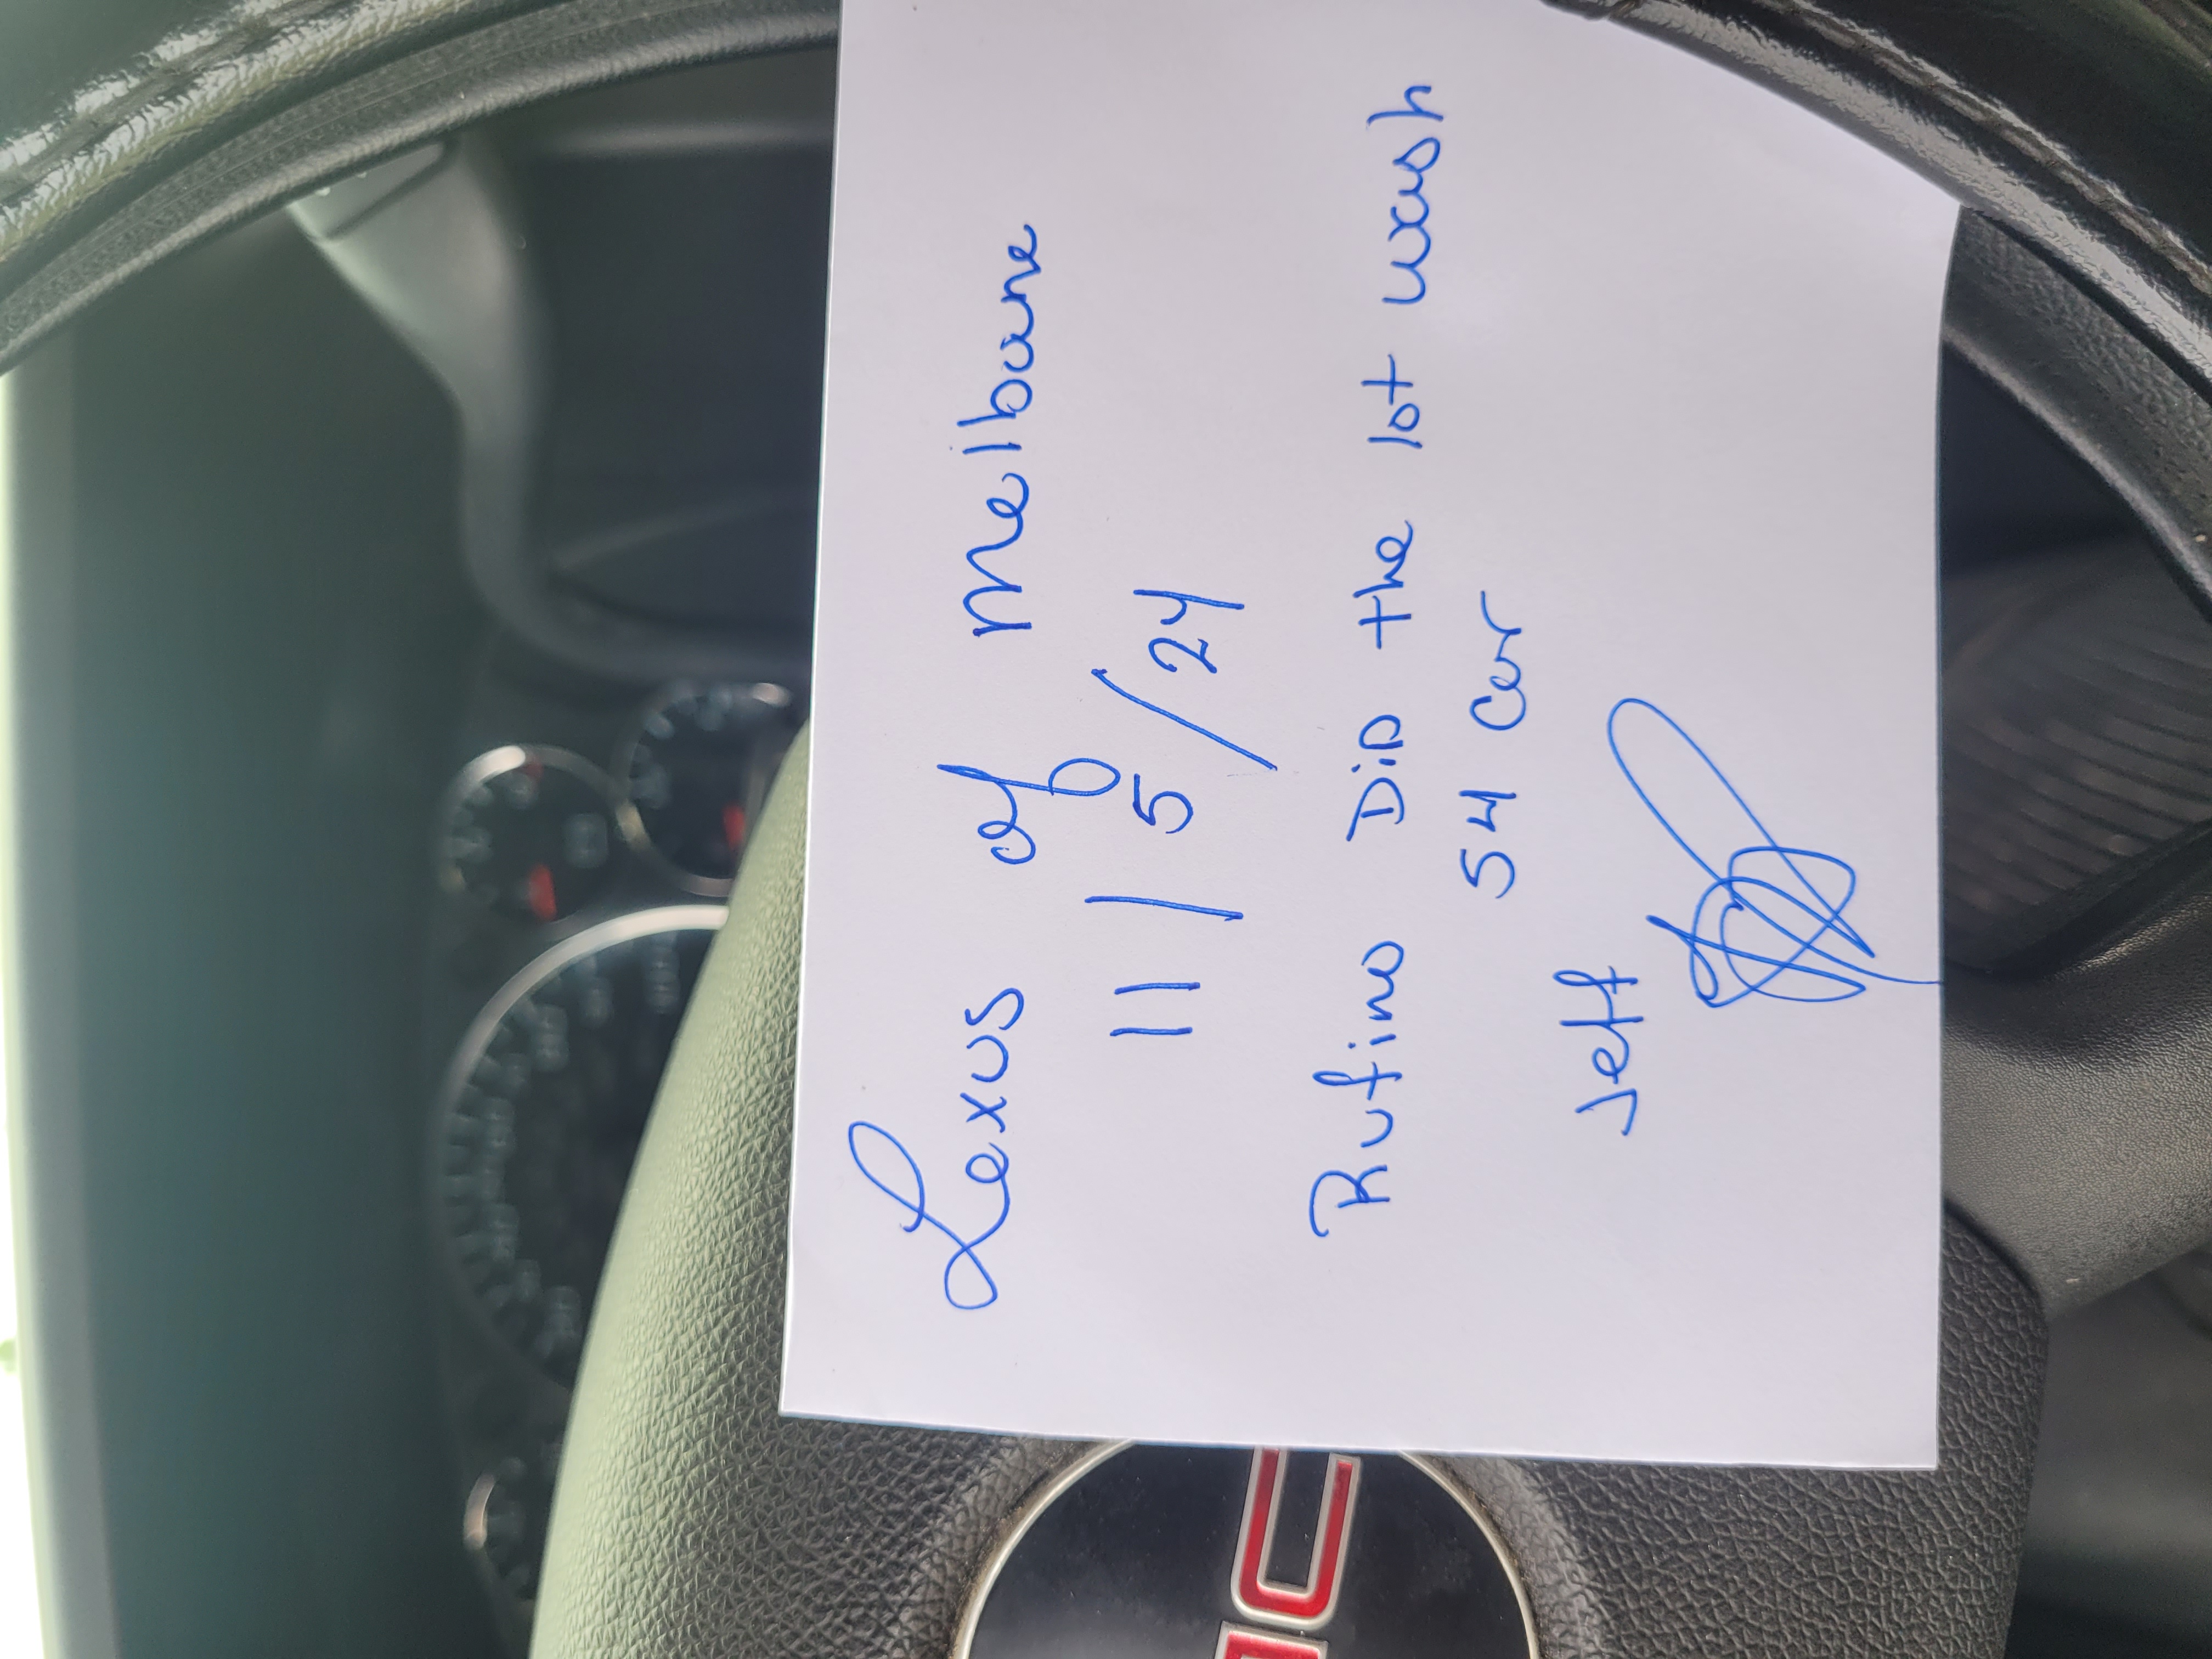 Lexus of Melbourne
11/5/24
Rufino Did the lot wash
54 Car
Jeff